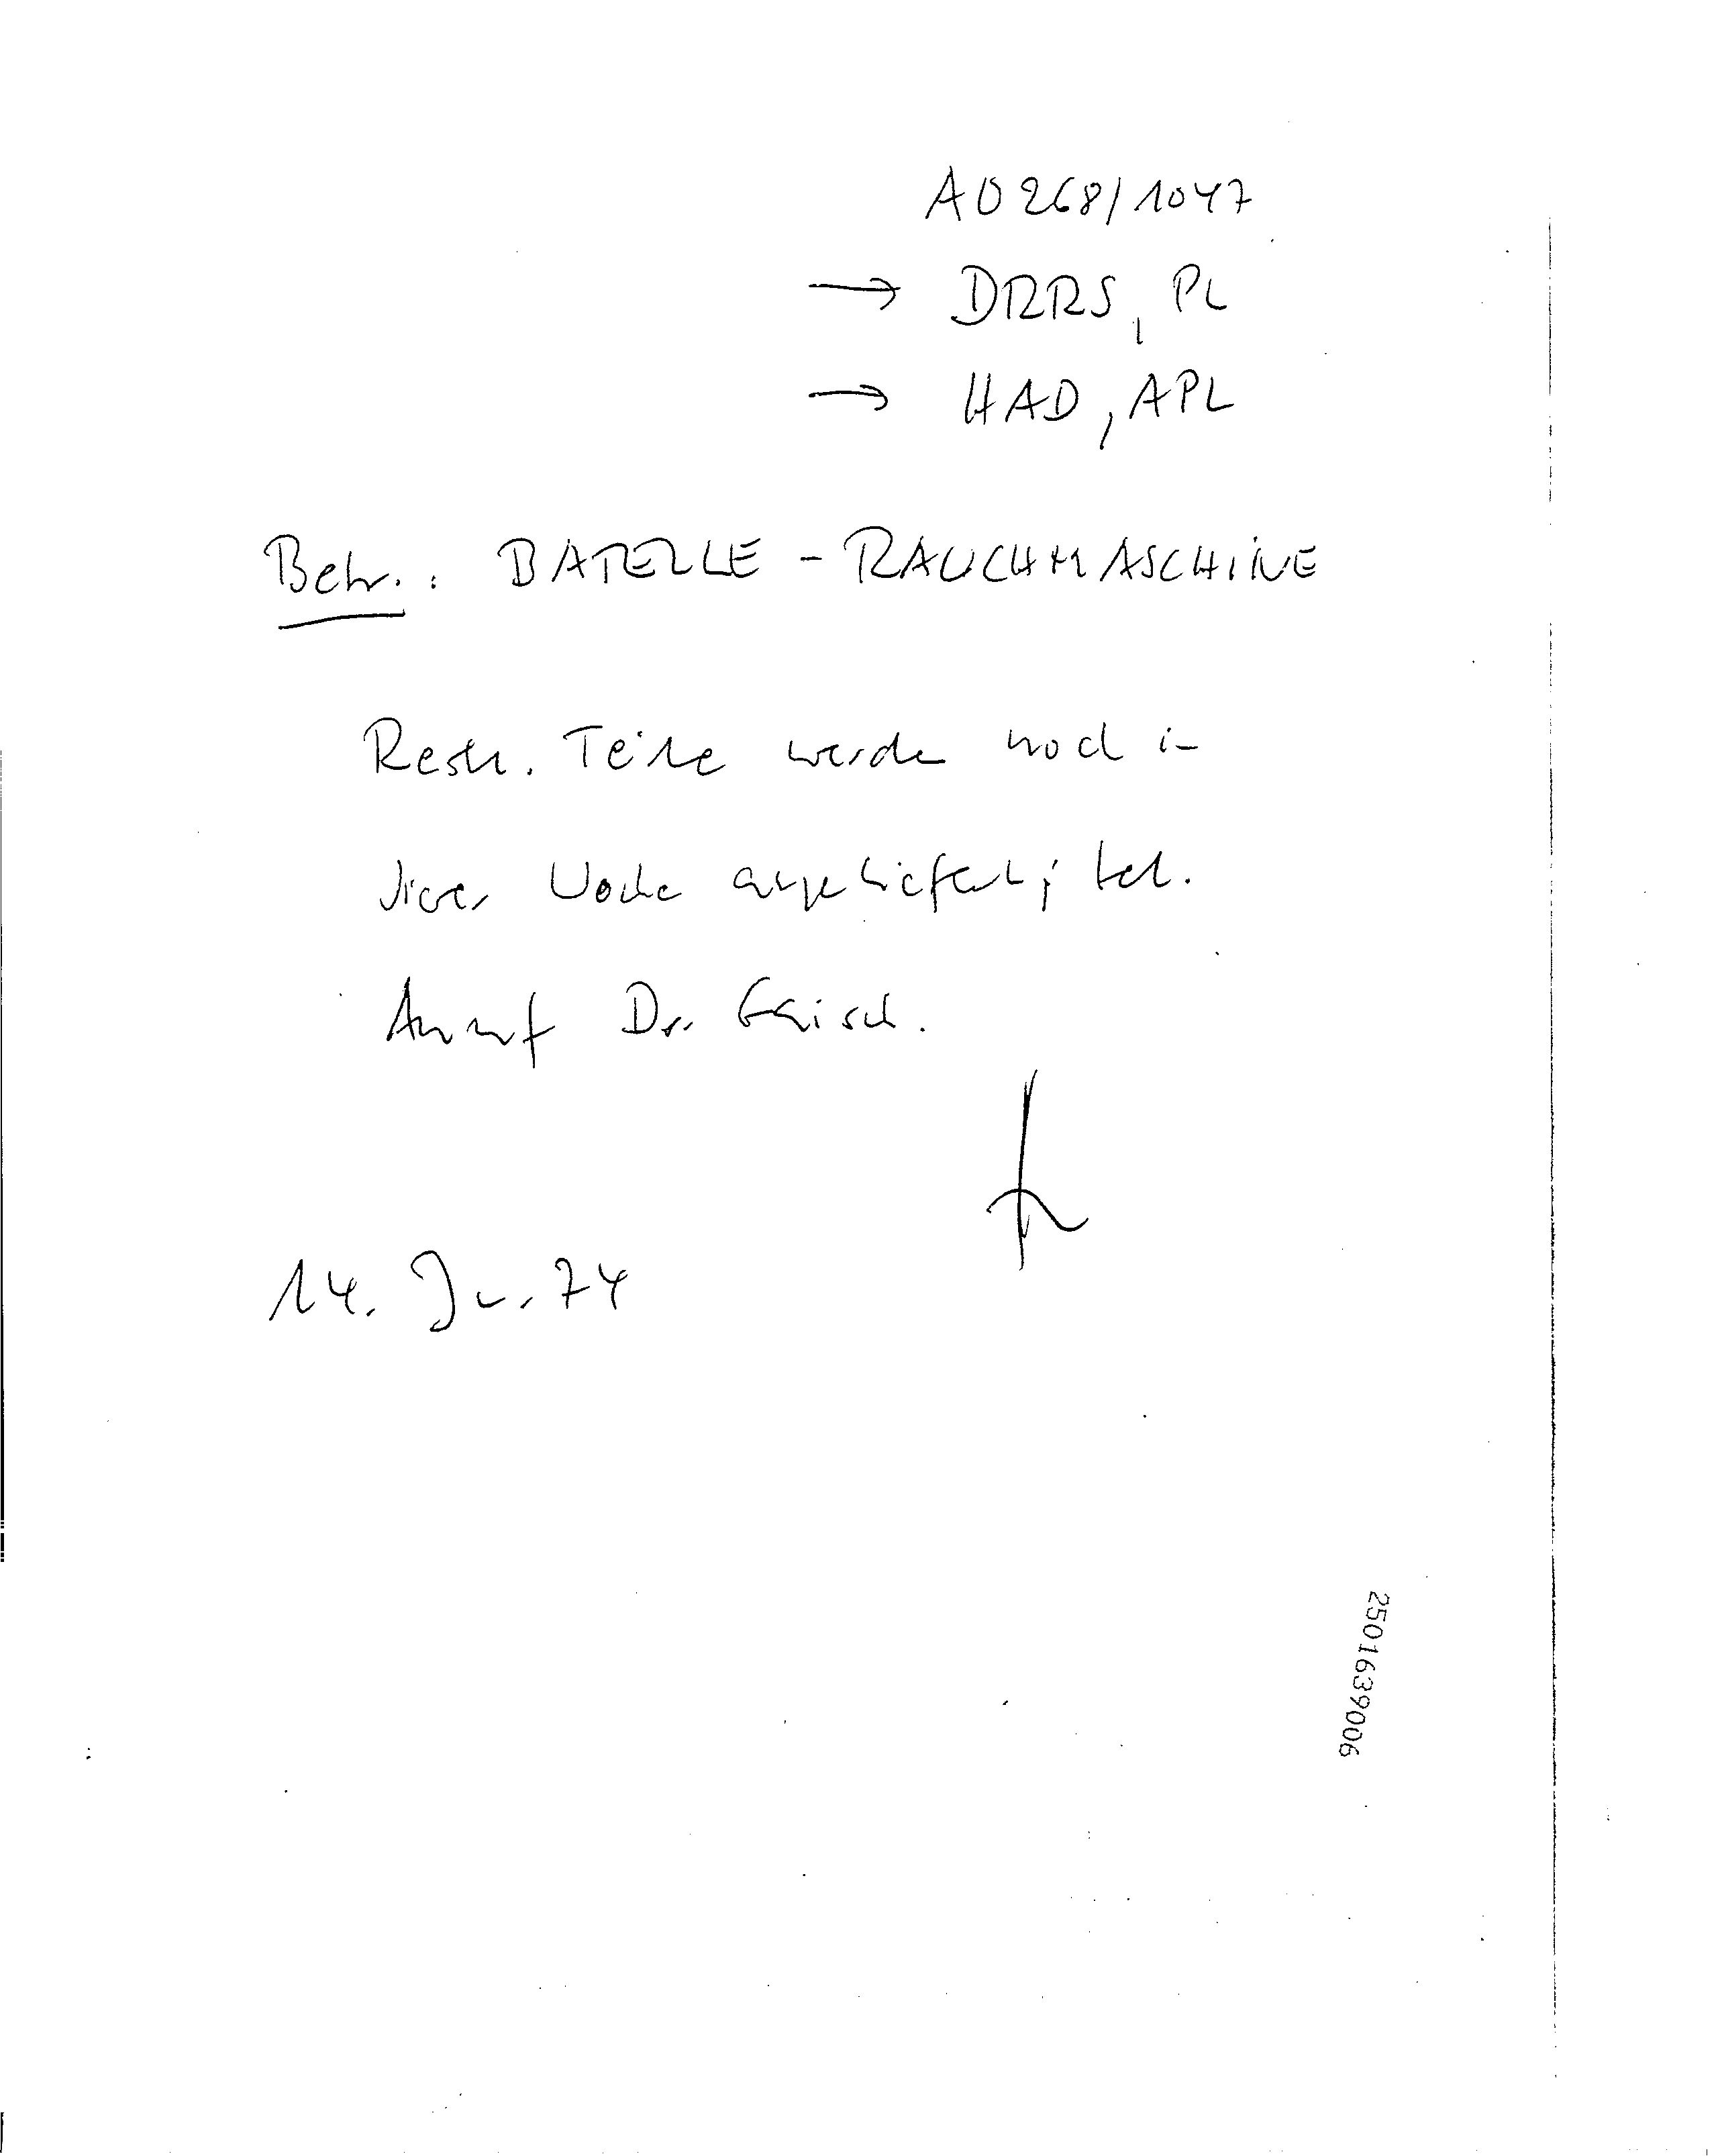 A0268/1047
→ DRRS, PL
→ HAD, APL
Betr.: BATELLE - RAUCHMASCHINE
Restl. Teile werden noch in
dieser Woche angeliefert; tel.
Anruf Dr.
14. Jun. 74
2501639006